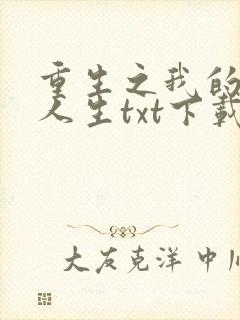 重生之我的
人生txt下载
大友克洋 中